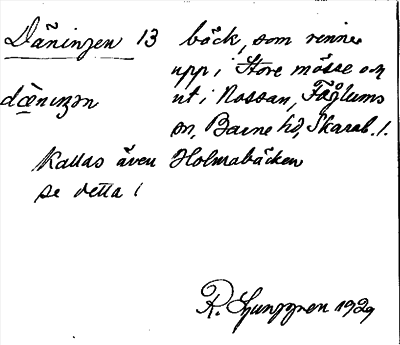 Däningen 13 bäck, som rinner
upp i Store mosse och
dä̀nıŋən ut i Nossan, Fåglums
sn, Barne hd, Skarab. l.
Kallas även Holmabäcken
se detta!
R. Ljunggren 1929